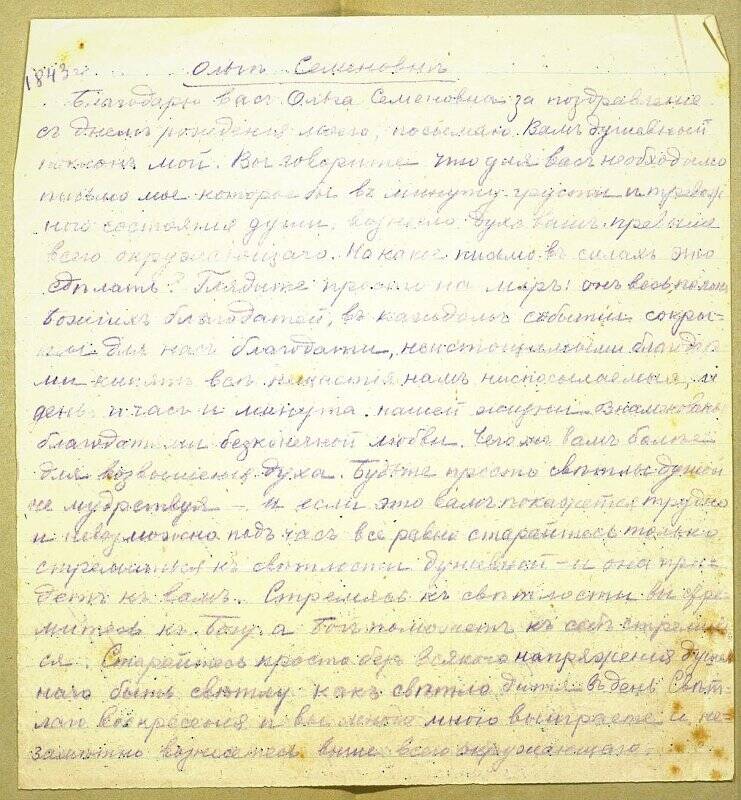 1843 г. Ольгѣ Семеновнѣ
Благодарю васъ Ольга Семеновна за поздравление
съ днемъ рождения моего, посылаю Вамъ душевный
поклонъ мой. Вы говорите что для васъ необходимо
письмо мое которое бы въ минуту грусти и тревож
ного состояния души, вознесло духъ вашъ превыше
всего окружающаго. Но какое письмо въ силахъ это
сдѣлать? Глядите просто на миръ: онъ весь полонъ
божиихъ благодатей, въ каждомъ событии сокры-
ты для насъ благодати, неистощимыми благодатя
ми кипятъ всѣ несчастія намъ ниспосылаемыя, и
день и часъ и минута нашей жизни ознаменованы
благодатями безконечной любви. Чего же вамъ болѣе
для возвышения духа. Будьте просто свѣтлы душой
не мудрствуя - и если это вамъ покажется трудно
и невозможно подъ часъ все равно старайтесь только
стремиться къ свѣтлости душевной - и она при-
детъ къ вамъ. Стремясь къ свѣтлости вы стре
митесь къ Богу а Богъ помогаетъ къ себѣ стремить
ся. Старайтесь просто безъ всякого напряжения душев
наго быть свѣтлу какъ свѣтло дитя въ день Свѣт
лаго воскресения и вы много много выиграете и не-
замѣтно вознесетесь выше всего окружающаго.